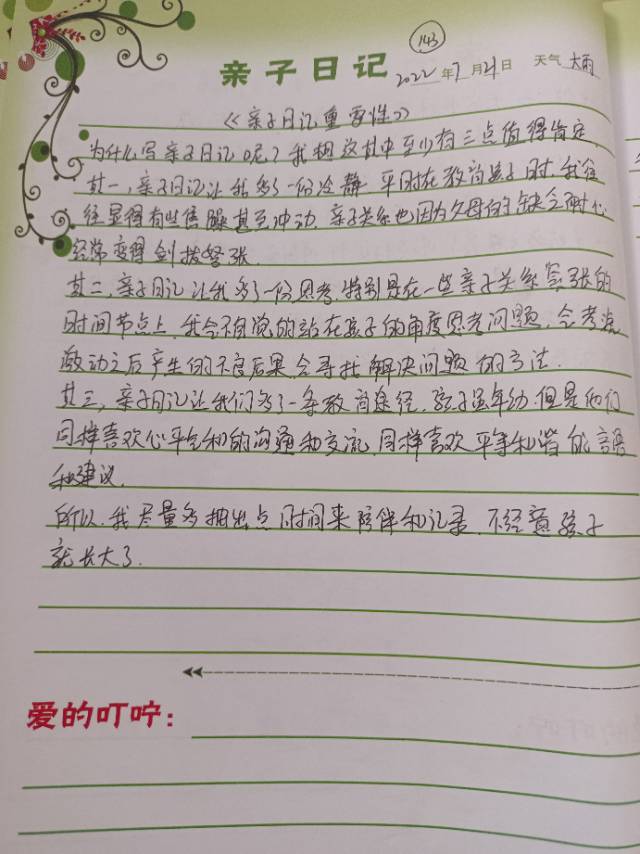 143
亲子日记 2022年7月21日 天气 大雨
《亲子日记重要性》
为什么写亲子日记呢？我想这其中至少有三点值得肯定
其一，亲子日记让我多了一份冷静，平时在教育孩子时，我往
往显得有些急躁甚至冲动，亲子关系也因为父母的缺乏耐心
经常变得剑拔弩张.
其二，亲子日记让我多了一份思考，特别是在一些亲子关系紧张的
时间节点上，我会不自觉的站在孩子的角度思考问题，会考虑
激动之后产生的不良后果，会寻找解决问题的方法.
其三，亲子日记让我们多了一条教育途径，孩子虽年幼，但是他们
同样喜欢心平气和的沟通和交流，同样喜欢平等和谐的語
和建议.
所以，我尽量多抽出点时间来陪伴和记录，不经意孩子
就长大了.
爱的叮咛：